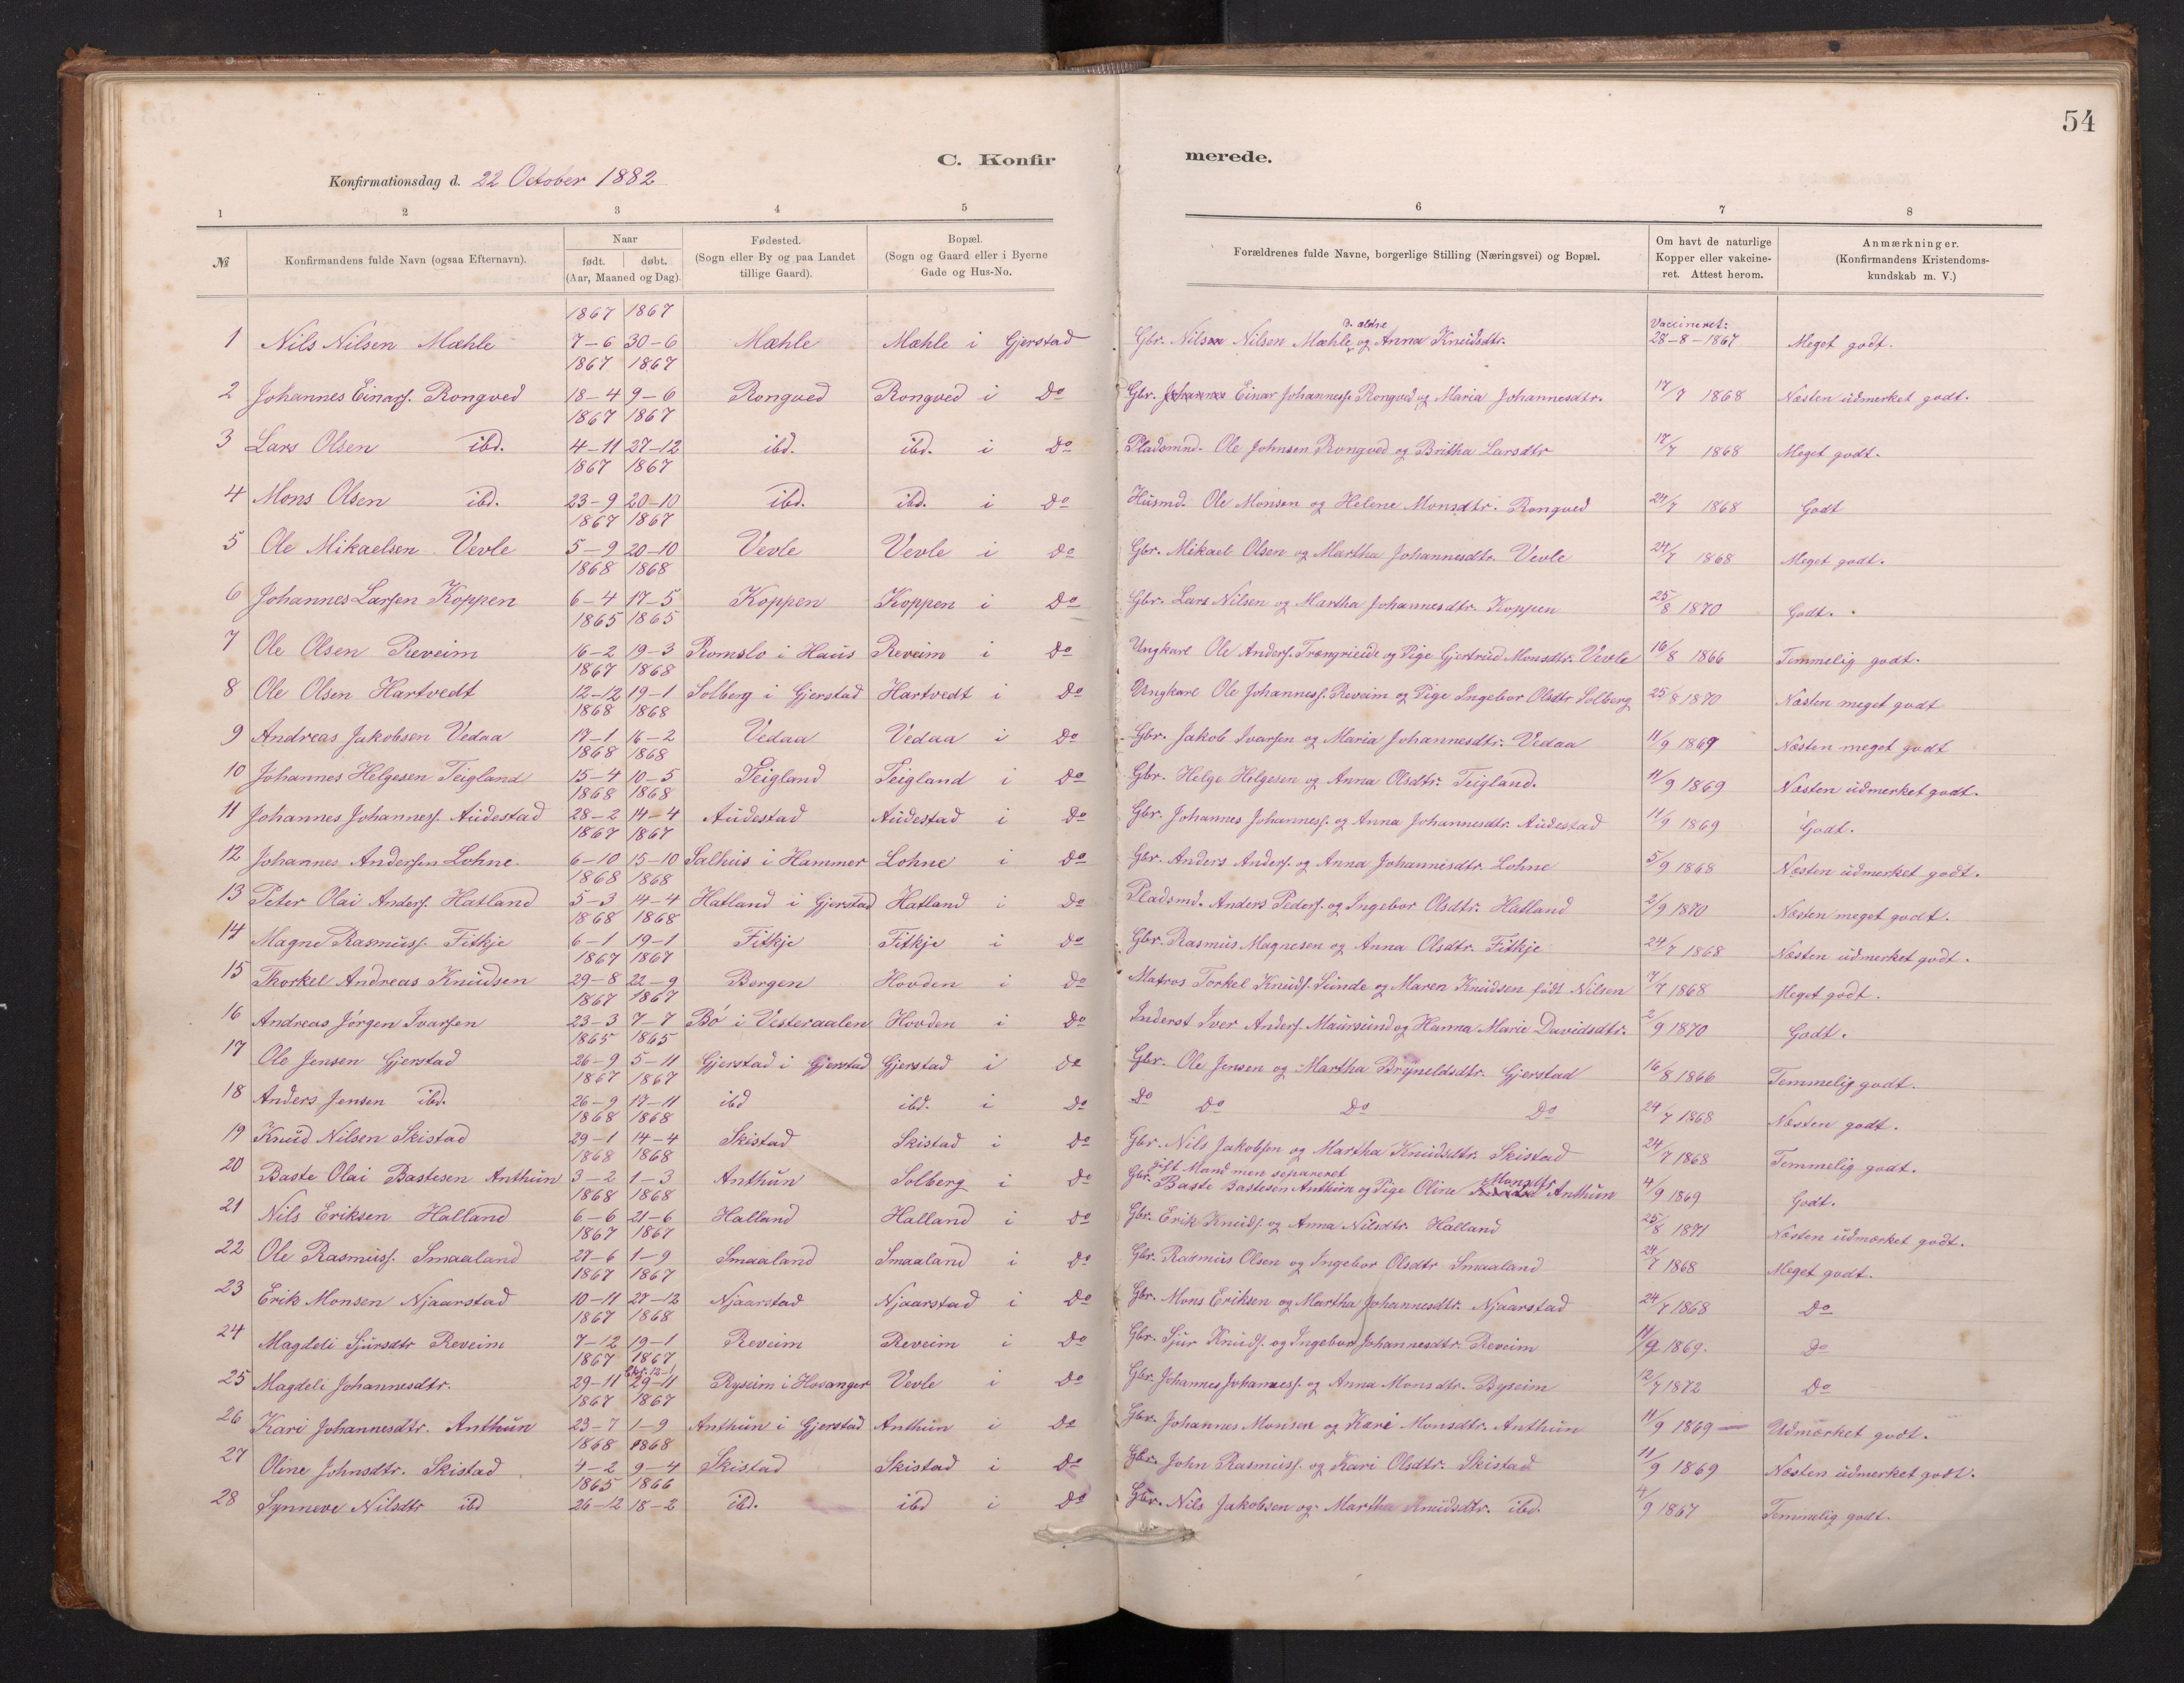 54
C. Konfirmerede.
Konfirmationsdag d. 22 October 1882
1 2 3 4 5 6 7 8
№ | Konfirmandens fulde Navn (ogsaa Efternavn). | Naar født. døbt. (Aar, Maaned og Dag). | Fødested. (Sogn eller By og paa Landet tillige Gaard). | Bopæl. (Sogn og Gaard eller i Byerne Gade og Hus-No. | Forældrenes fulde Navne, borgerlige Stilling (Næringsvei) og Bopæl. | Om havt de naturlige Kopper eller vakcineret. Attest herom. | Anmærkninger. (Konfirmandens Kristendomskundskab m. V.)
1 | Nils Nilsen Mæhle | 1867 7-6 | 1867 30-6 | Mæhle | Mæhle i Gjerstad | Gbr. Nilsen Nilsen Mæhle d. ældre og Anna Knudsdtr. | Vaccineret: 28-8-1867 | Meget godt.
2 | Johannes Einars. Rongved | 1867 18-4 | 1867 9-6 | Rongved | Rongved i Do | Gbr. Johannes Einar Johanness. Rongved og Maria Johannesdtr. | 17/7 1868 | Næsten udmerket godt.
3 | Lars Olsen ibd. | 1867 4-11 | 1867 27-12 | ibd. | ibd. i Do | Pladsmnd. Ole Johnsen Rongved og Britha Larsdtr | 17/7 1868 | Meget godt.
4 | Mons Olsen ibd. | 1867 23-9 | 1867 20-10 | ibd. | ibd. i Do | Husmd. Ole Monsen og Helene Monsdtr. Rongved | 24/7 1868 | Godt
5 | Ole Mikaelsen Vevle | 1867 5-9 | 1867 20-10 | Vevle | Vevle i Do | Gbr. Mikael Olsen og Martha Johannesdtr. Vevle | 24/7 1868 | Meget godt.
6 | Johannes Larsen Koppen | 1868 6-4 | 1868 17-5 | Koppen | Koppen i Do | Gbr. Lars Nilsen og Martha Johannesdtr. Koppen | 25/8 1870 | Godt.
7 | Ole Olsen Reveim | 1865 16-2 | 1865 19-3 | Romslo i Haus | Reveim i Do | Ungkarl Ole Anders. Trængrieide og Pige Gjertrud Monsdtr. Vevle | 16/8 1866 | Temmelig godt.
8 | Ole Olsen Hartvedt | 1867 12-12 | 1868 19-1 | Solberg i Gjerstad | Hartvedt i Do | Ungkarl Ole Johanness. Reveim og Pige Ingebor Olsdtr Solberg | 25/8 1870 | Næsten meget godt
9 | Andreas Jakobsen Vedaa | 1868 17-1 | 1868 16-2 | Vedaa | Vedaa i Do | Gbr. Jakob Ivarsen og Maria Johannesdtr. Vedaa | 11/9 1869 | Næsten meget godt
10 | Johannes Helgesen Teigland | 1868 15-4 | 1868 10-5 | Teigland | Teigland i Do | Gbr. Helge Helgesen og Anna Olsdtr. Teigland. | 11/9 1869 | Næsten udmerket godt.
11 | Johannes Johanness. Audestad | 1868 28-2 | 1868 14-4 | Audestad | Audestad i Do | Gbr. Johannes Johanness. og Anna Johannesdtr. Audestad | 11/9 1869 | Godt.
12 | Johannes Andersen Lohne. | 1867 6-10 | 1867 15-10 | Salhus i Hammer | Lohne i Do | Gbr. Anders Anders. og Anna Johannesdtr. Lohne | 5/9 1868 | Næsten udmerket godt.
13 | Peter Olai Anders. Hatland | 1868 5-3 | 1868 14-4 | Hatland i Gjerstad | Hatland i Do | Pladsmd. Anders Peders. og Ingebor Olsdtr. Hatland | 2/9 1870 | Næsten meget godt.
14 | Magne Rasmuss. Fitkje | 1868 6-1 | 1868 19-1 | Fitkje | Fitkje i Do | Gbr. Rasmus Magnesen og Anna Olsdtr. Fitkje | 24/7 1868 | Næsten udmerket godt.
15 | Thorkel Andreas Knudsen | 1867 29-8 | 1867 22-9 | Bergen | Hovden i Do | Matros Torkel Knuds. Sunde og Maren Knudsen født Nilsen | 7/7 1868 | Meget godt.
16 | Andreas Jørgen Ivarsen | 1867 23-3 | 1867 7-7 | Bö i Vesteraalen | Hovden i Do | Inderst Iver Anders. Maursund og Hanna Marie Davidsdtr. | 2/9 1870 | Godt.
17 | Ole Jensen Gjerstad | 1865 26-9 | 1865 5-11 | Gjerstad i Gjerstad | Gjerstad i Do | Gbr. Ole Jensen og Martha Bryneldsdtr. Gjerstad | 16/8 1866 | Temmelig godt.
18 | Anders Jensen ibd. | 1867 26-9 | 1867 17-11 | ibd | ibd. i Do | Do Do Do Do | 24/7 1868 | Næsten godt.
19 | Knud Nilsen Skistad | 1868 29-1 | 1868 14-4 | Skistad | Skistad i Do | Gbr. Nils Jakobsen og Martha Knudsdtr. Skistad | 24/7 1868 | Temmelig godt.
20 | Baste Olai Bastesen Anthun | 1868 3-2 | 1868 1-3 | Anthun | Solberg i Do | Gbr. gift Mand men separeret Baste Bastesen Anthun og Pige Oline Monsdtr Anthun | 4/9 1869 | Godt.
21 | Nils Eriksen Halland | 1868 6-6 | 1868 21-6 | Halland | Halland i Do | Gbr. Erik Knuds. og Anna Nilsdtr. Halland | 25/8 1871 | Næsten udmærket godt.
22 | Ole Rasmuss. Smaaland | 1867 27-6 | 1867 1-9 | Smaaland | Smaaland i Do | Gbr. Rasmus Olsen og Ingebor Olsdtr Smaaland | 24/7 1868 | Meget godt.
23 | Erik Monsen Njaarstad | 1867 10-11 | 1867 27-12 | Njaarstad | Njaarstad i Do | Gbr. Mons Eriksen og Martha Johannesdtr. Njaarstad | 24/7 1868 | Do
24 | Magdeli Sjursdtr Reveim | 1867 7-12 | 1868 19-1 | Reveim | Reveim i Do | Gbr. Sjur Knuds. og Ingebor Johannesdtr. Reveim | 11/9 1869. | Do
25 | Magdeli Johannesdtr. | 1867 29-11 | 1867 29-11 | Byseim i Hosanger | Vevle i Do | Gbr. Johannes Johanness. og Anna Monsdtr. Byseim | 12/7 1872 | Do
26 | Kari Johannesdtr. Anthun | 1867 23-7 | 1867 1-9 | Anthun i Gjerstad | Anthun i Do | Gbr. Johannes Monsen og Kari Monsdtr. Anthun | 11/9 1869 | Udmærket godt.
27 | Oline Johnsdtr. Skistad | 1868 4-2 | 1868 9-4 | Skistad | Skistad i Do | Gbr. John Rasmuss. og Kari Olsdtr. Skistad | 11/9 1869 | Næsten udmerket godt.
28 | Synneve Nilsdtr ibd | 1865 26-12 | 1866 18-2 | ibd. | ibd i Do | Gbr. Nils Jakobsen og Martha Knudsdtr. ibd. | 4/9 1867 | Temmelig godt.